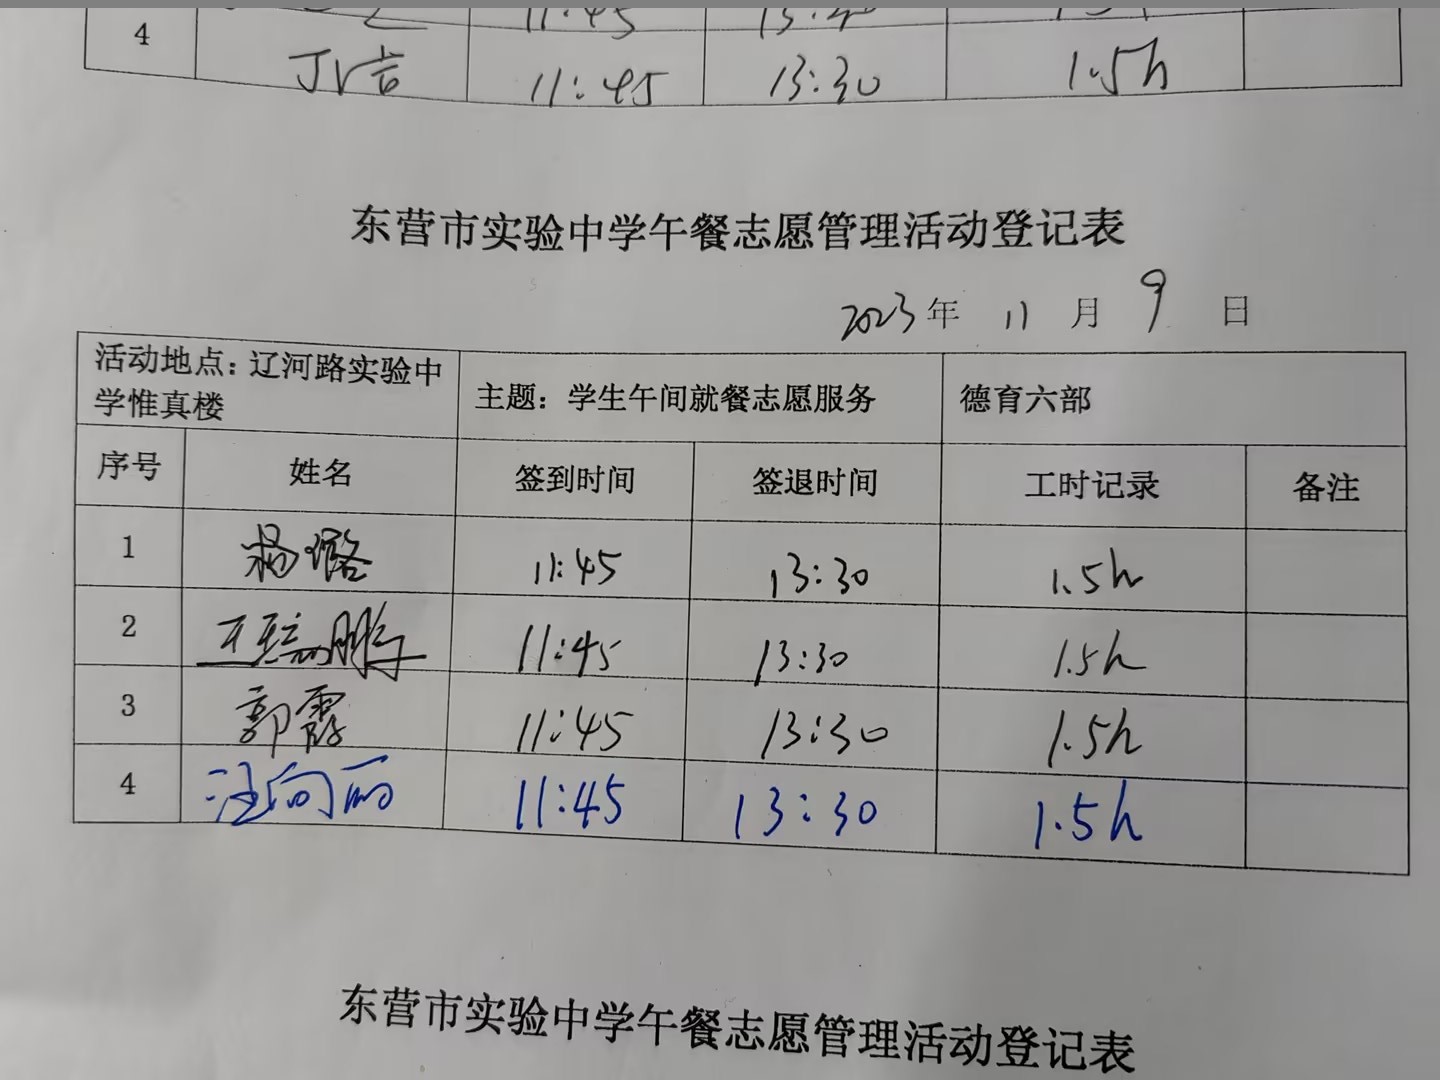 4
11:45 13:30 1.5h
东营市实验中学午餐志愿管理活动登记表
2023年 11 月 9 日
活动地点：辽河路实验中学惟真楼 主题：学生午间就餐志愿服务 德育六部
序号 姓名 签到时间 签退时间 工时记录 备注
1 杨璐 11:45 13:30 1.5h
2 王瑞鹏 11:45 13:30 1.5h
3 郭霞 11:45 13:30 1.5h
4 汪向丽 11:45 13:30 1.5h
东营市实验中学午餐志愿管理活动登记表